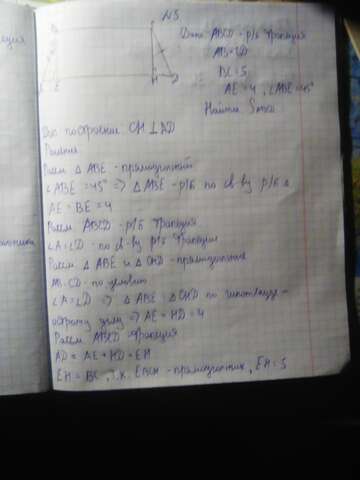 №3
Дано: ABCD - р/б трапеция
AB = CD
BC = 5
AE = 4, ∠ABE = 45°
Найти SABCD
Доп. построение CH ⊥ AD
Решение
Рассм. △ ABE - прямоугольный
∠ABE = 45° => △ ABE - р/б по св-ву р/б △
AE = BE = 4
Рассм. ABCD - р/б трапеция
∠A = ∠D - по св-ву р/б трапеции
Рассм. △ ABE и △ CHD - прямоугольные
AB = CD - по условию
∠A = ∠D => △ ABE = △ CHD по гипотенузе -
острому углу => AE = HD = 4
Рассм. ABCD трапеция
AD = AE + HD + EH
EH = BC, т.к. EBCH - прямоугольник, EH = 5